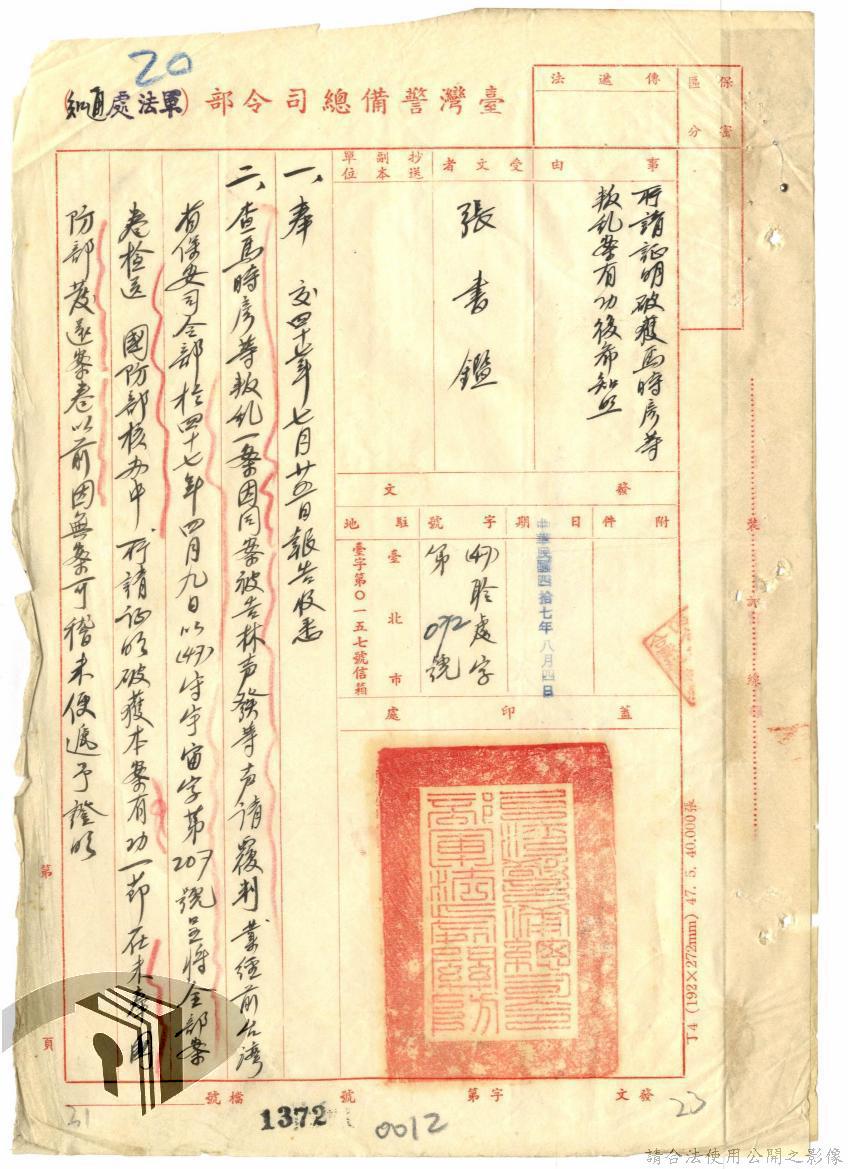 20
臺灣警備總司令部(軍法處)通知
保密區分
傳遞法
事由
所請証明破獲馬時彥等
叛乱案有功復希知照
受文者
張書鑑
抄送副本單位
發文
附件
日期
中華民國四拾七年八月四日
字號
(47)聆處字
第072號
駐地
臺北市
臺字第〇一五七號信箱
蓋印處
一、奉 交四十七年七月廿五日報告收悉
二、查馬時彥等叛乱一案因同案被告林声發等声請覆判業經前台灣
省保安司令部於四十七年四月九日以(47)字第207號呈將全部案
卷檢送 國防部核办中所請証明破獲本案有功一節在未奉國
防部發還案卷以前因無案可稽未便遽予證明
裝訂線
第 頁
J4 (192×272mm) 47. 5. 40,000張
發文 字第 號
檔號
1372
0012
31
23
請合法使用公開之影像